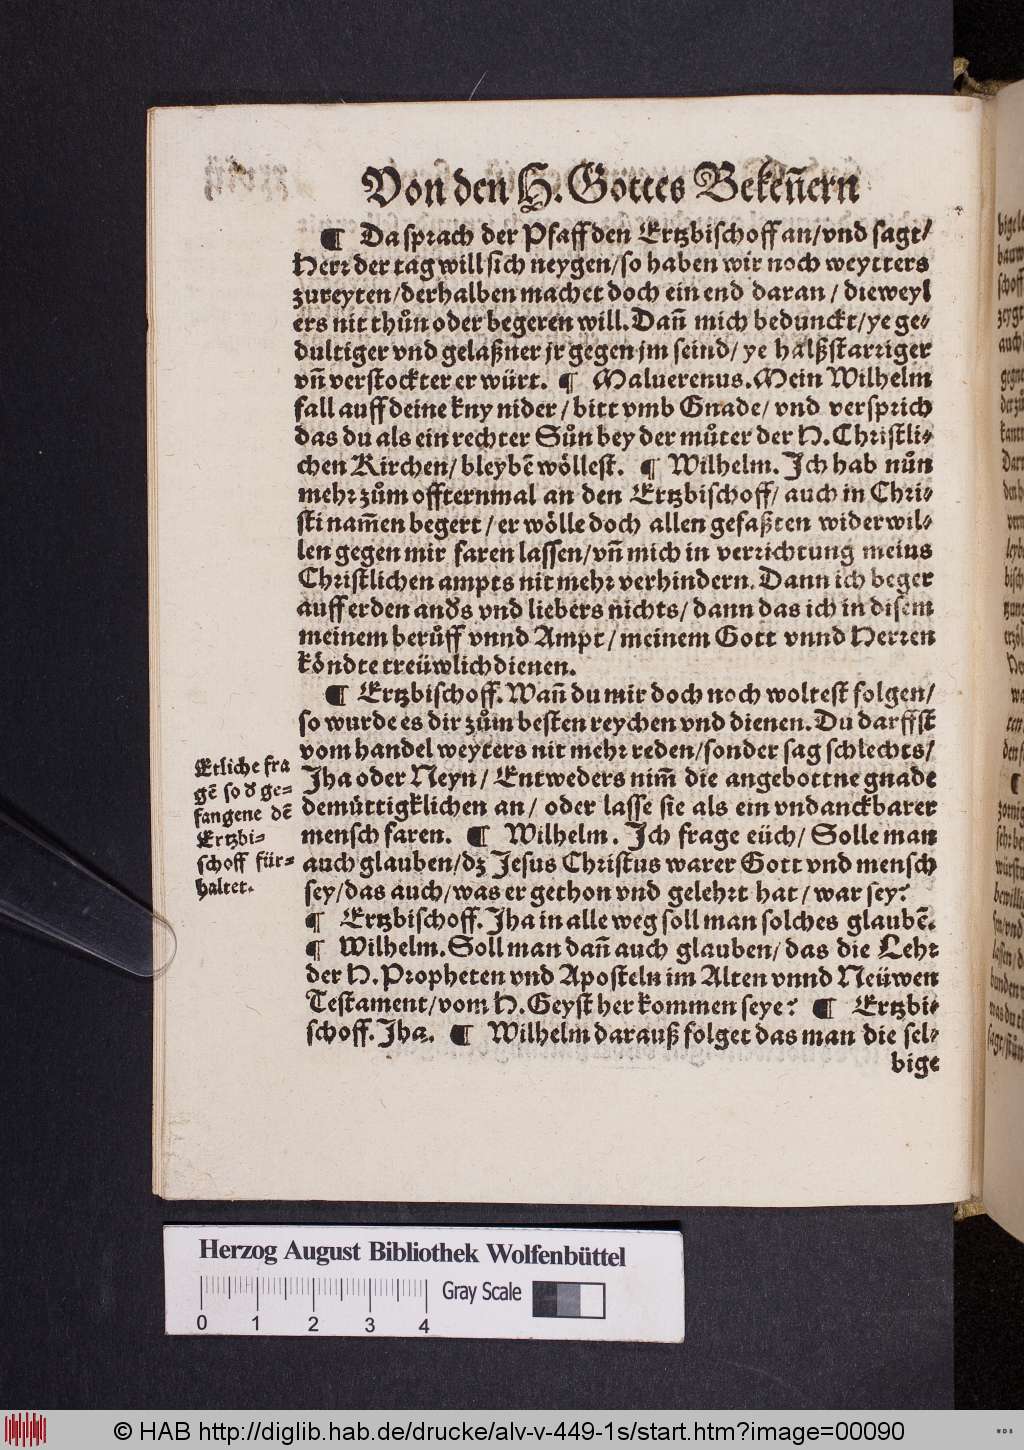 Von den H. Gottes Bekeñern
¶ Da sprach der Pfaff den Ertzbischoff an/vnd sagt/
Herr der tag will sich neygen/so haben wir noch weytters
zureyten/derhalben machet doch ein end daran / dieweyl
ers nit thůn oder begeren will. Dañ mich bedunckt/ye ge-
dultiger vnd gelaßner jr gegen jm seind/ ye halßstarriger
vñ verstockter er würt. ¶ Maluerenus. Mein Wilhelm
fall auff deine kny nider / bitt vmb Gnade/ vnd versprich
das du als ein rechter Sůn bey der můter der H. Christli-
chen Kirchen/ bleybẽ wöllest. ¶ Wilhelm. Ich hab nůn
mehr zům offternmal an den Ertzbischoff/ auch in Chri-
sti nam̃en begert / er wölle doch allen gefaßten widerwil-
len gegen mir faren lassen/vñ mich in verrichtung meins
Christlichen ampts nit mehr verhindern. Dann ich beger
auff erden anďs vnd liebers nichts/ dann das ich in disem
meinem berůff vnnd Ampt/ meinem Gott vnnd Herren
köndte treüwlich dienen.
¶ Ertzbischoff. Wañ du mir doch noch woltest folgen/
so wurde es dir zům besten reychen vnd dienen. Du darffst
vom handel weyters nit mehr reden/sonder sag schlechts/
Jha oder Neyn/ Entweders nim̃ die angebottne gnade
demüttigklichen an/ oder lasse sie als ein vndanckbarer
mensch faren. ¶ Wilhelm. Ich frage eüch/ Solle man
auch glauben/dz Jesus Christus warer Gott vnd mensch
sey/das auch/was er gethon vnd gelehrt hat/ war sey?
¶ Ertzbischoff. Jha in alle weg soll man solches glaubẽ.
¶ Wilhelm. Soll man dañ auch glauben/ das die Lehr
der H. Propheten vnd Aposteln im Alten vnnd Neüwen
Testament/vom H. Geyst her kommen seye? ¶ Ertzbi-
schoff. Jha. ¶ Wilhelm darauß folget das man die sel-
bige
Etliche fra
gẽ so ď ge-
fangene dẽ
Ertzbi-
schoff für-
haltet.
Herzog August Bibliothek Wolfenbüttel
0 1 2 3 4
Gray Scale
© HAB http://diglib.hab.de/drucke/alv-v-449-1s/start.htm?image=00090